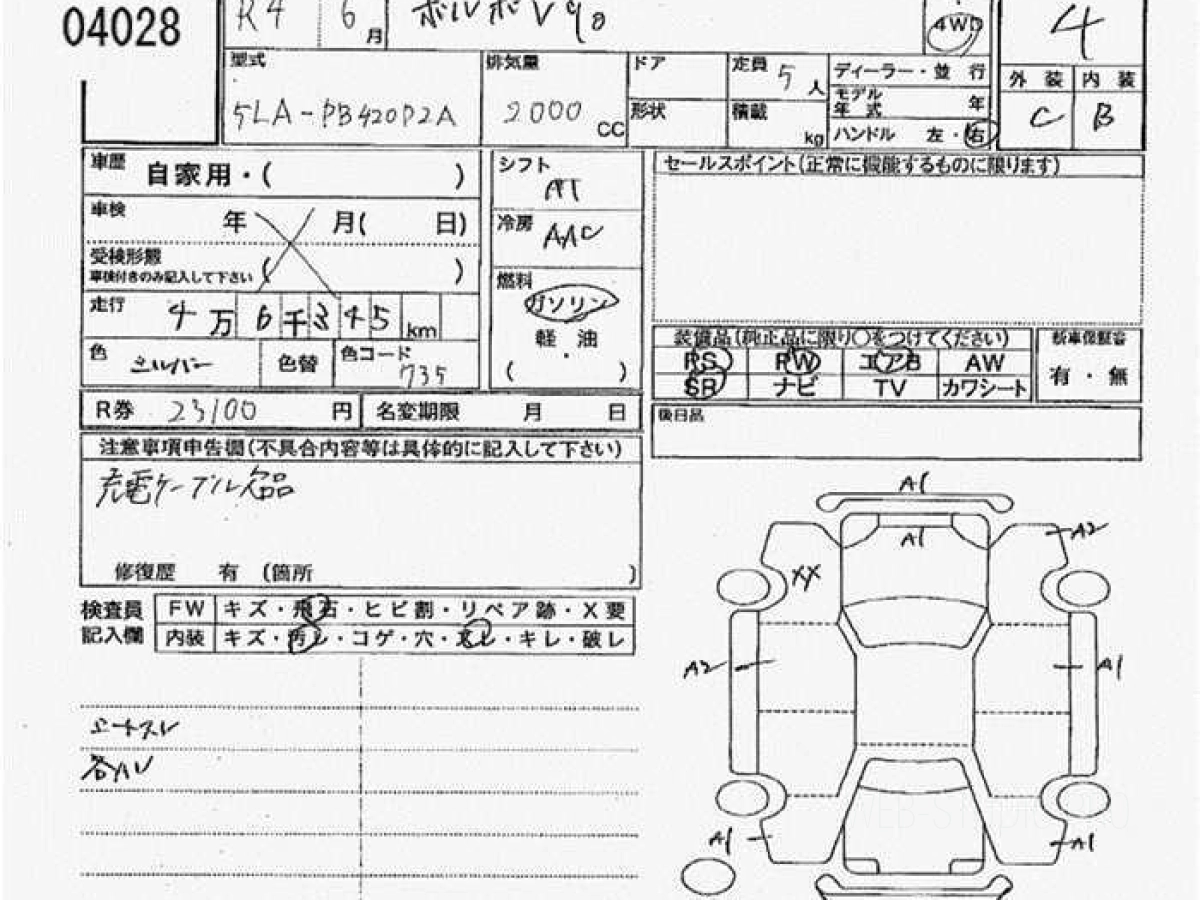 04028
R4 6月
ボルボV90
4WD
4
型式
5LA-PB420P2A
排気量
2000 CC
ドア
形状
定員 5人
積載 kg
ディーラー・並 行
モデル年式 年
ハンドル 左・右
外装 内装
C B
車歴 自家用・( )
車検 年 月( 日)
受検形態
車検付きのみ記入して下さい ( )
走行 4万6千345km
色 シルバー 色替 色コード 735
シフト
AT
冷房 AAC
燃料
ガソリン
軽 油
( ・ )
セールスポイント(正常に機能するものに限ります)
装備品(純正品に限り○をつけてください)
PS PW エアB AW
SR ナビ TV カワシート
新車保証書
有・無
後日品
R券 23100 円 名変期限 月 日
注意事項申告欄(不具合内容等は具体的に記入して下さい)
充電ケーブル欠品
修復歴 有 (箇所 )
検査員
記入欄
FW キズ・飛石・ヒビ割・リペア跡・X要
内装 キズ・汚レ・コゲ・穴・スレ・キレ・破レ
A1
A1
A2
XX
A2
A1
A1
A1